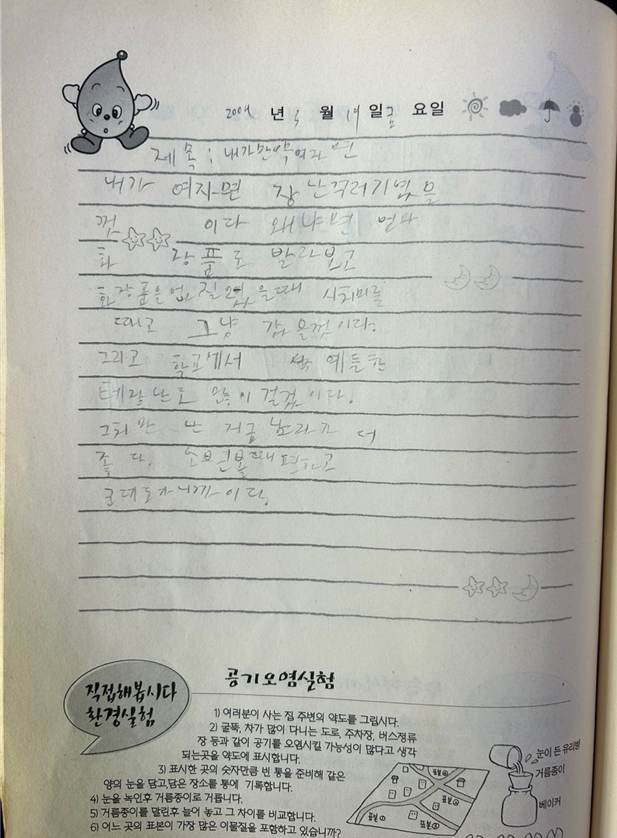 2004 년 5 월 19 일 요일
제목 : 내가만약여자면
내가 여자면 장난꾸러기였을
껏 이다 왜냐면 엄마
화 장품도 발라보고
화장품을 엎 질렀을때 시치미를
때고 그냥 갔을껏이다.
그리고 학교에서 예들한
테 장난도 많이 걸껏이다.
그치만 난 지금 남자가 더
좋다. 소변볼때 편하고
군대도가니까이다.
직접해봅시다
환경실험
공기오염실험
1) 여러분이 사는 집 주변의 약도를 그립시다.
2) 굴뚝, 차가 많이 다니는 도로, 주차장, 버스정류
장 등과 같이 공기를 오염시킬 가능성이 많다고 생각
되는곳을 약도에 표시합니다.
3) 표시한 곳의 숫자만큼 빈 통을 준비해 같은
양의 눈을 담고,담은 장소를 통에 기록합니다.
4) 눈을 녹인후 거름종이로 거릅니다.
5) 거름종이를 말린후 늘어 놓고 그 차이를 비교합니다.
6) 어느 곳의 표본이 가장 많은 이물질을 포함하고 있습니까?
눈이 든 유리병
거름종이
비이커